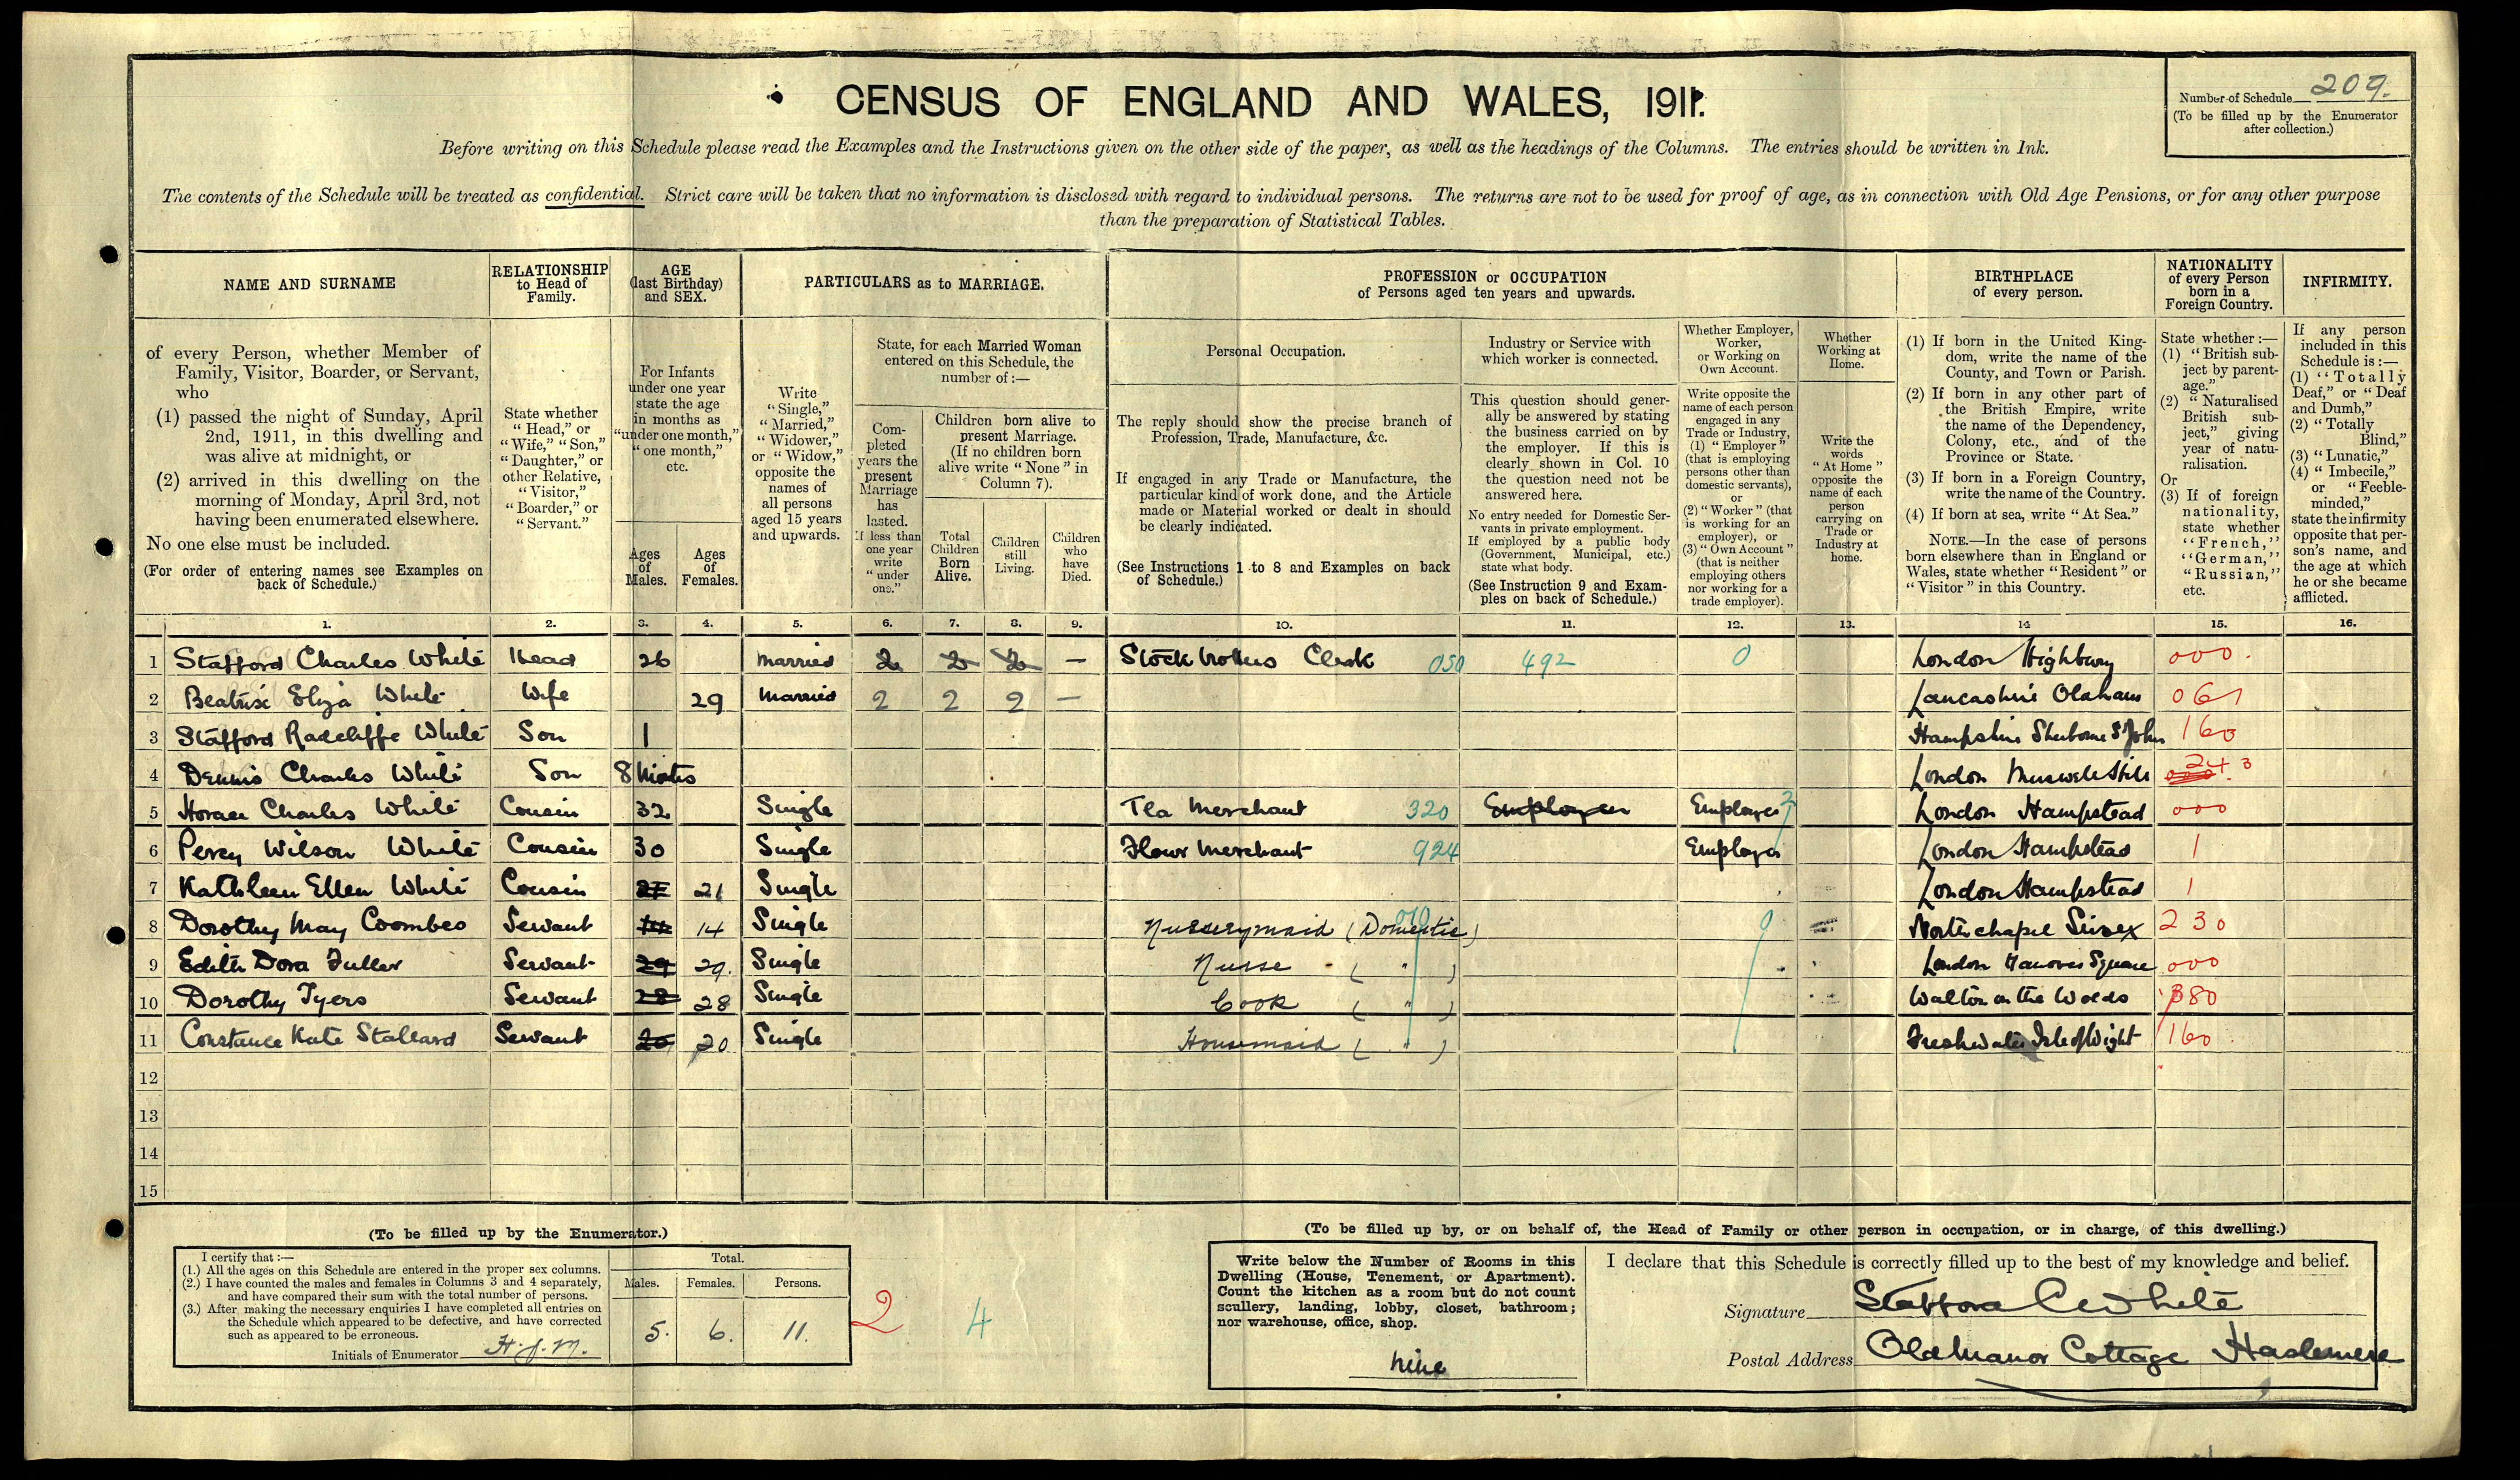 CENSUS OF ENGLAND AND WALES, 1911.
Number of Schedule 209.
(To be filled up by the Enumerator
after collection.)
Before writing on this Schedule please read the Examples and the Instructions given on the other side of the paper, as well as the headings of the Columns. The entries should be written in Ink.
The contents of the Schedule will be treated as confidential. Strict care will be taken that no information is disclosed with regard to individual persons. The returns are not to be used for proof of age, as in connection with Old Age Pensions, or for any other purpose
than the preparation of Statistical Tables.
NAME AND SURNAME
of every Person, whether Member of
Family, Visitor, Boarder, or Servant,
who
(1) passed the night of Sunday, April
2nd, 1911, in this dwelling and
was alive at midnight, or
(2) arrived in this dwelling on the
morning of Monday, April 3rd, not
having been enumerated elsewhere.
No one else must be included.
(For order of entering names see Examples on
back of Schedule.)
RELATIONSHIP
to Head of
Family.
State whether
"Head," or
"Wife," "Son,"
"Daughter," or
other Relative,
"Visitor,"
"Boarder," or
"Servant."
AGE
(last Birthday)
and SEX.
For Infants
under one year
state the age
in months as
"under one month,"
"one month,"
etc.
Ages
of
Males.
Ages
of
Females.
PARTICULARS as to MARRIAGE.
Write
"Single,"
"Married,"
"Widower,"
or "Widow,"
opposite the
names of
all persons
aged 15 years
and upwards.
State, for each Married Woman
entered on this Schedule, the
number of :—
Com-
pleted
years the
present
Marriage
has
lasted.
If less than
one year
write
"under
one."
Children born alive to
present Marriage.
(If no children born
alive write "None" in
Column 7).
Total
Children
Born
Alive.
Children
still
Living.
Children
who
have
Died.
PROFESSION or OCCUPATION
of Persons aged ten years and upwards.
Personal Occupation.
The reply should show the precise branch of
Profession, Trade, Manufacture, &c.
If engaged in any Trade or Manufacture, the
particular kind of work done, and the Article
made or Material worked or dealt in should
be clearly indicated.
(See Instructions 1 to 8 and Examples on back
of Schedule.)
Industry or Service with
which worker is connected.
This question should gener-
ally be answered by stating
the business carried on by
the employer. If this is
clearly shown in Col. 10
the question need not be
answered here.
No entry needed for Domestic Ser-
vants in private employment.
If employed by a public body
(Government, Municipal, etc.)
state what body.
(See Instruction 9 and Exam-
ples on back of Schedule.)
Whether Employer,
Worker,
or Working on
Own Account.
Write opposite the
name of each person
engaged in any
Trade or Industry,
(1) "Employer"
(that is employing
persons other than
domestic servants),
or
(2) "Worker" (that
is working for an
employer), or
(3) "Own Account"
(that is neither
employing others
nor working for a
trade employer).
Whether
Working at
Home.
Write the
words
"At Home"
opposite the
name of each
person
carrying on
Trade or
Industry at
home.
BIRTHPLACE
of every person.
(1) If born in the United King-
dom, write the name of the
County, and Town or Parish.
(2) If born in any other part of
the British Empire, write
the name of the Dependency,
Colony, etc., and of the
Province or State.
(3) If born in a Foreign Country,
write the name of the Country.
(4) If born at sea, write "At Sea."
NOTE.—In the case of persons
born elsewhere than in England or
Wales, state whether "Resident" or
"Visitor" in this Country.
NATIONALITY
of every Person
born in a
Foreign Country.
State whether :—
(1) "British sub-
ject by parent-
age."
(2) "Naturalised
British sub-
ject," giving
year of natu-
ralisation.
Or
(3) If of foreign
nationality,
state whether
"French,"
"German,"
"Russian,"
etc.
INFIRMITY.
If any person
included in this
Schedule is :—
(1) "Totally
Deaf," or "Deaf
and Dumb,"
(2) "Totally
Blind,"
(3) "Lunatic,"
(4) "Imbecile,"
or "Feeble-
minded,"
state the infirmity
opposite that per-
son's name, and
the age at which
he or she became
afflicted.
1. 2. 3. 4. 5. 6. 7. 8. 9. 10. 11. 12. 13. 14 15. 16.
1 Stafford Charles White Head 26 Married 2 2 2 — Stock brokers Clerk 050 492 0 London Highbury 000.
2 Beatrix Eliza White Wife 29 Married 2 2 2 — Lancashire Oldham 061
3 Stafford Radcliffe White Son 1 Hampshire Sherborne St John 160
4 Dennis Charles White Son 8 Months London Muswell Hill 243
5 Horace Charles White Cousin 32 Single Tea Merchant 320 Employer Employer 2 London Hampstead 000
6 Percy Wilson White Cousin 30 Single Flour Merchant 924 Employer London Hampstead 1
7 Kathleen Ellen White Cousin 21 21 Single London Hampstead 1
8 Dorothy May Coombes Servant 14 14 Single Nurserymaid (Domestic) 010 0 Northchapel Sussex 230
9 Edith Dora Fuller Servant 29 29. Single Nurse ( " ) London Hanover Square 000
10 Dorothy Tyers Servant 28 28 Single Cook ( " ) Walton on the Wolds 380
11 Constance Kate Stallard Servant 20 20 Single Housemaid ( " ) Freshwater Isle of Wight 160
12
13
14
15
(To be filled up by the Enumerator.)
I certify that :—
(1.) All the ages on this Schedule are entered in the proper sex columns.
(2.) I have counted the males and females in Columns 3 and 4 separately,
and have compared their sum with the total number of persons.
(3.) After making the necessary enquiries I have completed all entries on
the Schedule which appeared to be defective, and have corrected
such as appeared to be erroneous.
Initials of Enumerator H.J.M.
Total.
Males. Females. Persons.
5. 6. 11.
2 4
(To be filled up by, or on behalf of, the Head of Family or other person in occupation, or in charge, of this dwelling.)
Write below the Number of Rooms in this
Dwelling (House, Tenement, or Apartment).
Count the kitchen as a room but do not count
scullery, landing, lobby, closet, bathroom;
nor warehouse, office, shop.
nine
I declare that this Schedule is correctly filled up to the best of my knowledge and belief.
Signature Stafford C White
Postal Address Old Manor Cottage Haslemere